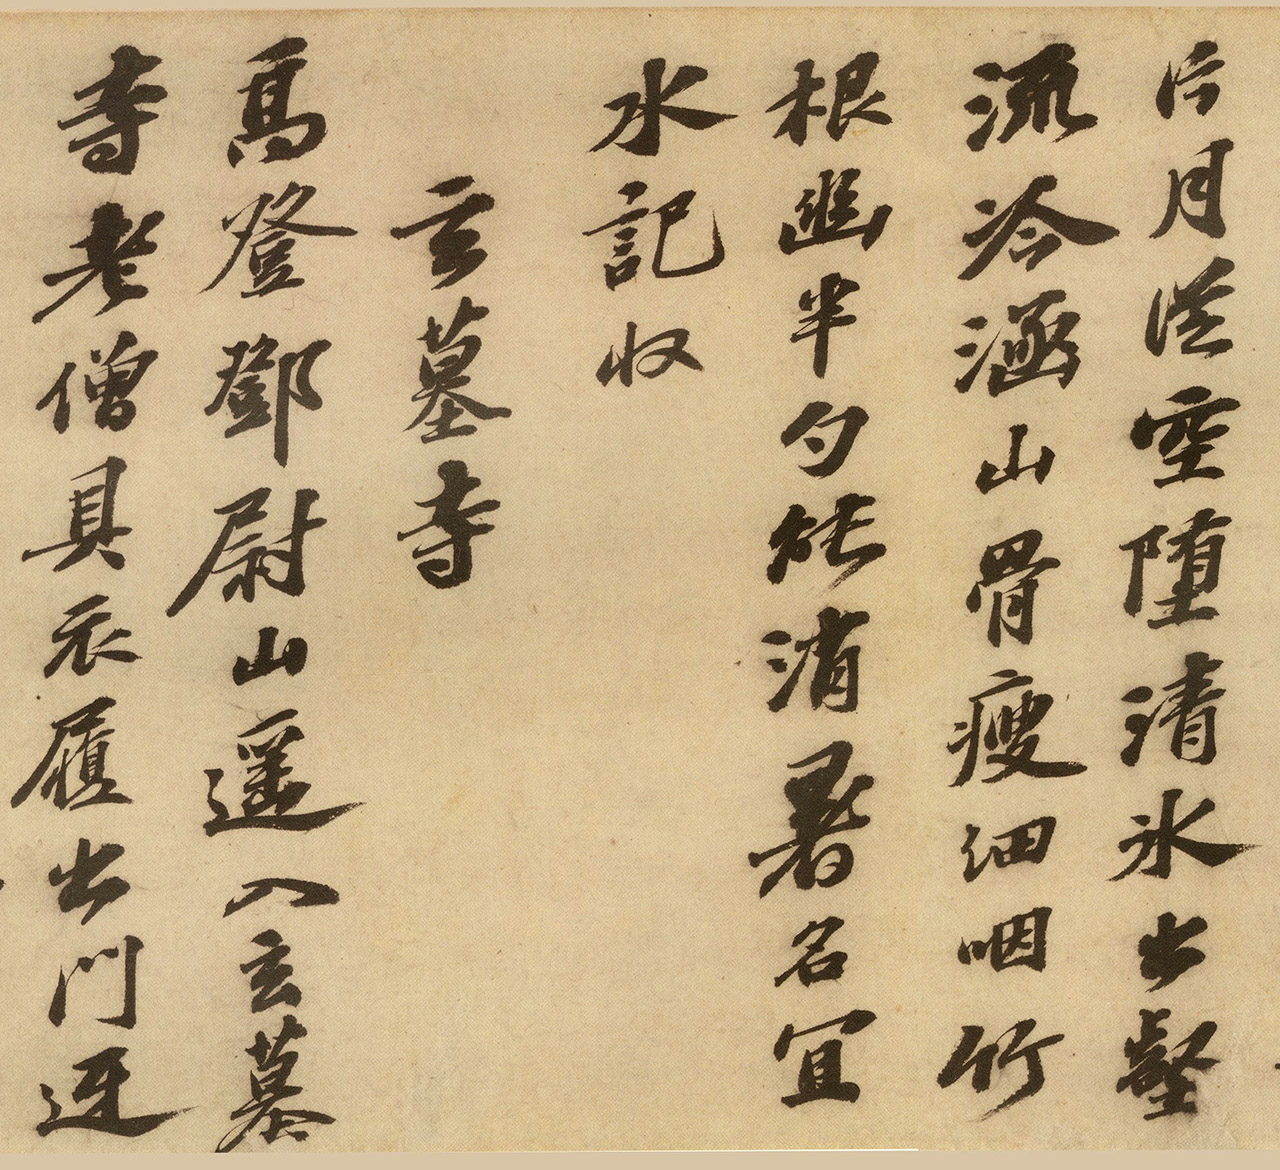 片月從空墮清氷出壑
流冷涵山骨瘦細咽竹
根幽半勺能消暑名宜
水記收
玄墓寺
高登鄧尉山遥入玄墓
寺老僧具衣履出門迓